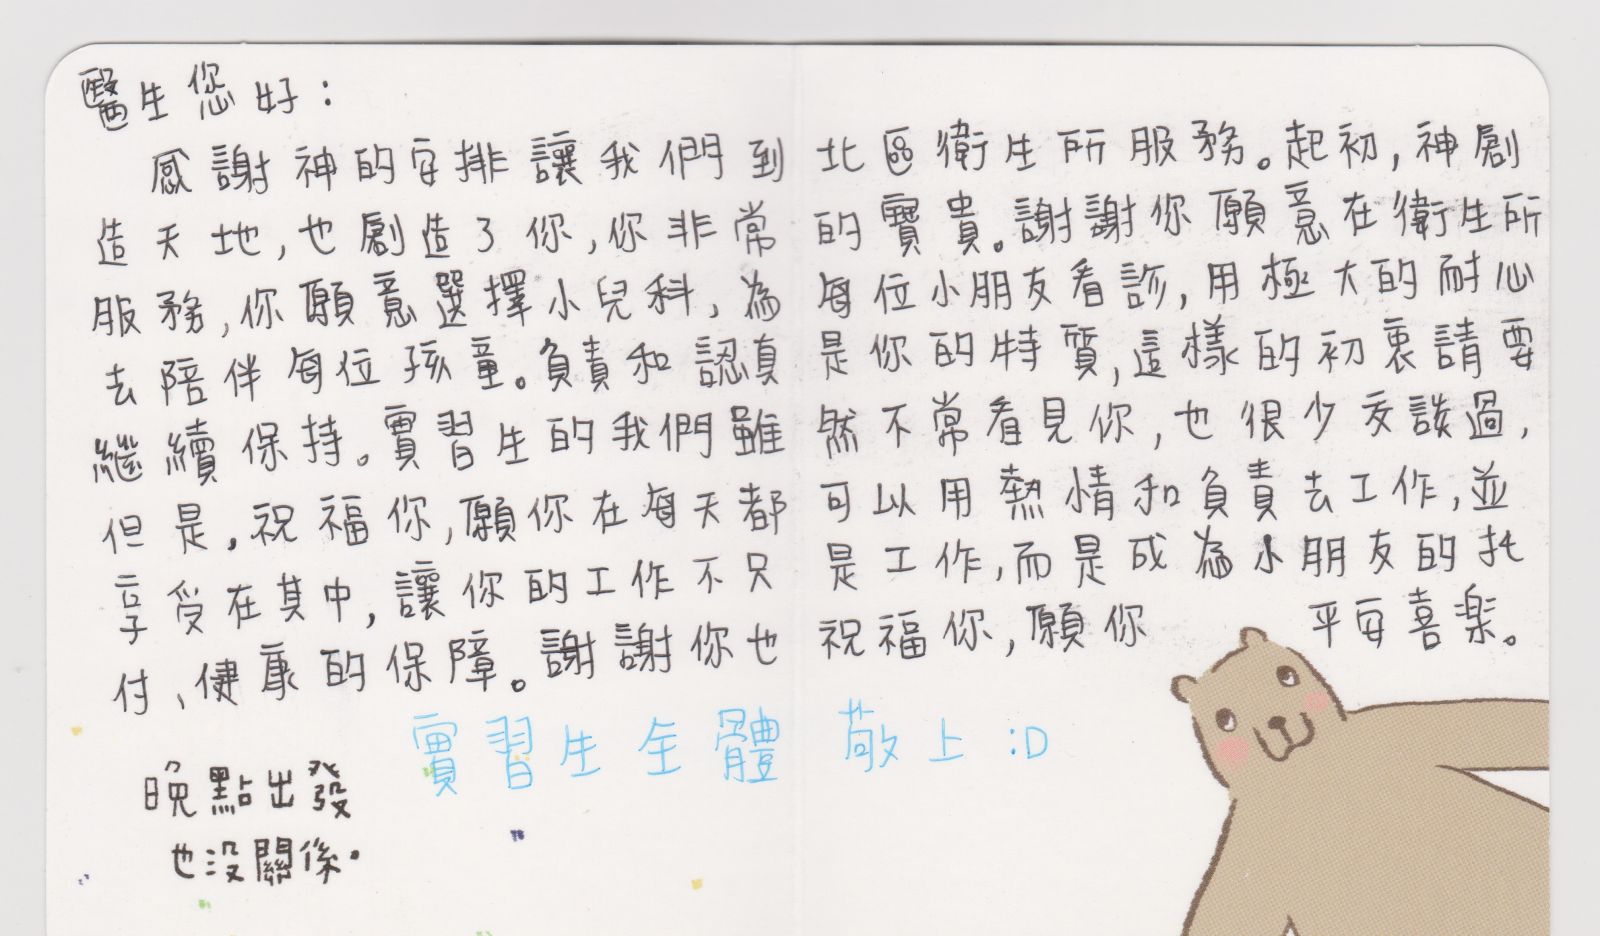 醫生您好：
感謝神的安排讓我們到北區衛生所服務。起初，神創
造天地，也創造了你，你非常的寶貴。謝謝你願意在衛生所
服務，你願意選擇小兒科，為每位小朋友看診，用極大的耐心
去陪伴每位孩童。負責和認真是你的特質，這樣的初衷請要
繼續保持。實習生的我們雖然不常看見你，也很少交談過，
但是，祝福你，願你在每天都可以用熱情和負責去工作，並
享受在其中，讓你的工作不只是工作，而是成為小朋友的托
付、健康的保障。謝謝你也祝福你，願你平安喜樂。
實習生全體 敬上 :D
晚點出發
也沒關係。